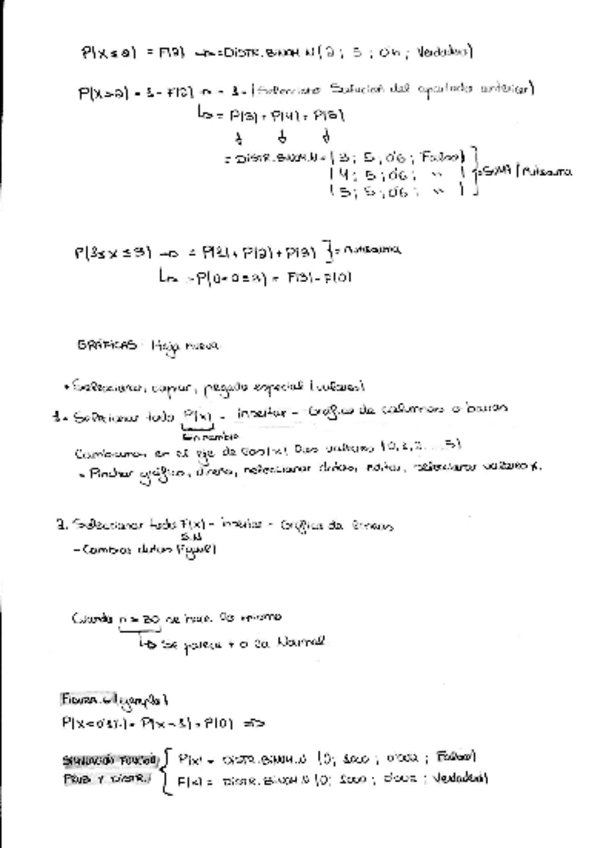 P(X≤2) = F(2) → =DISTR.BINOM.N(2; 5; 0'6; Verdadero)
P(X>2) = 1-F(2) → 1-(Selecciono Solución del apartado anterior)
↳ = P(3)+P(4)+P(5)
= DISTR.BINOM.N = (3; 5; 0'6; Falso)
(4; 5; 0'6; " ) } =SUMA/Autosuma
(5; 5; 0'6; " )
P(1≤X≤3) → = P(1)+P(2)+P(3) } = Autosuma
= F(3)-F(0)
GRÁFICAS: Hoja nueva
• Seleccionar, copiar, pegado especial (valores)
1. Seleccionar todo P(x) - insertar - Gráfico de columnas o barras
Sin nombre
Cambiamos en el eje de los (x) los valores (0,1,2...5)
• Pinchar gráfico, seleccionar datos, editar, seleccionar valores x.
2. Seleccionar todo F(x) - insertar - Gráfico de líneas
S.N
- Cambiar datos (igual)
Cuando n ≥ 30 se hace lo mismo
↳ Se parece + a la Normal
FIGURA 6 (ejemplo)
P(X=1)+P(0) ⇒
SIMULACIÓN FUNCIÓN { P(x) = DISTR.BINOM.N (0; 1000; 0'002; Falso)
PROB Y DISTR. F(x) = DISTR.BINOM.N (0; 1000; 0'002; Verdadero)